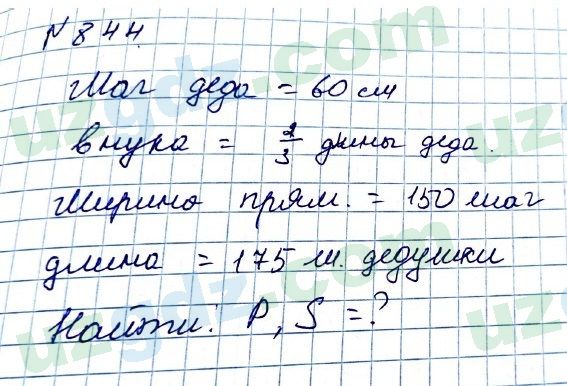 N 844.
Шаг деда = 60 см
внука = 2/3 длины деда.
Ширина прям. = 150 шаг
длина = 175 ш. дедушки
Найти: P, S = ?
uzgdz.com